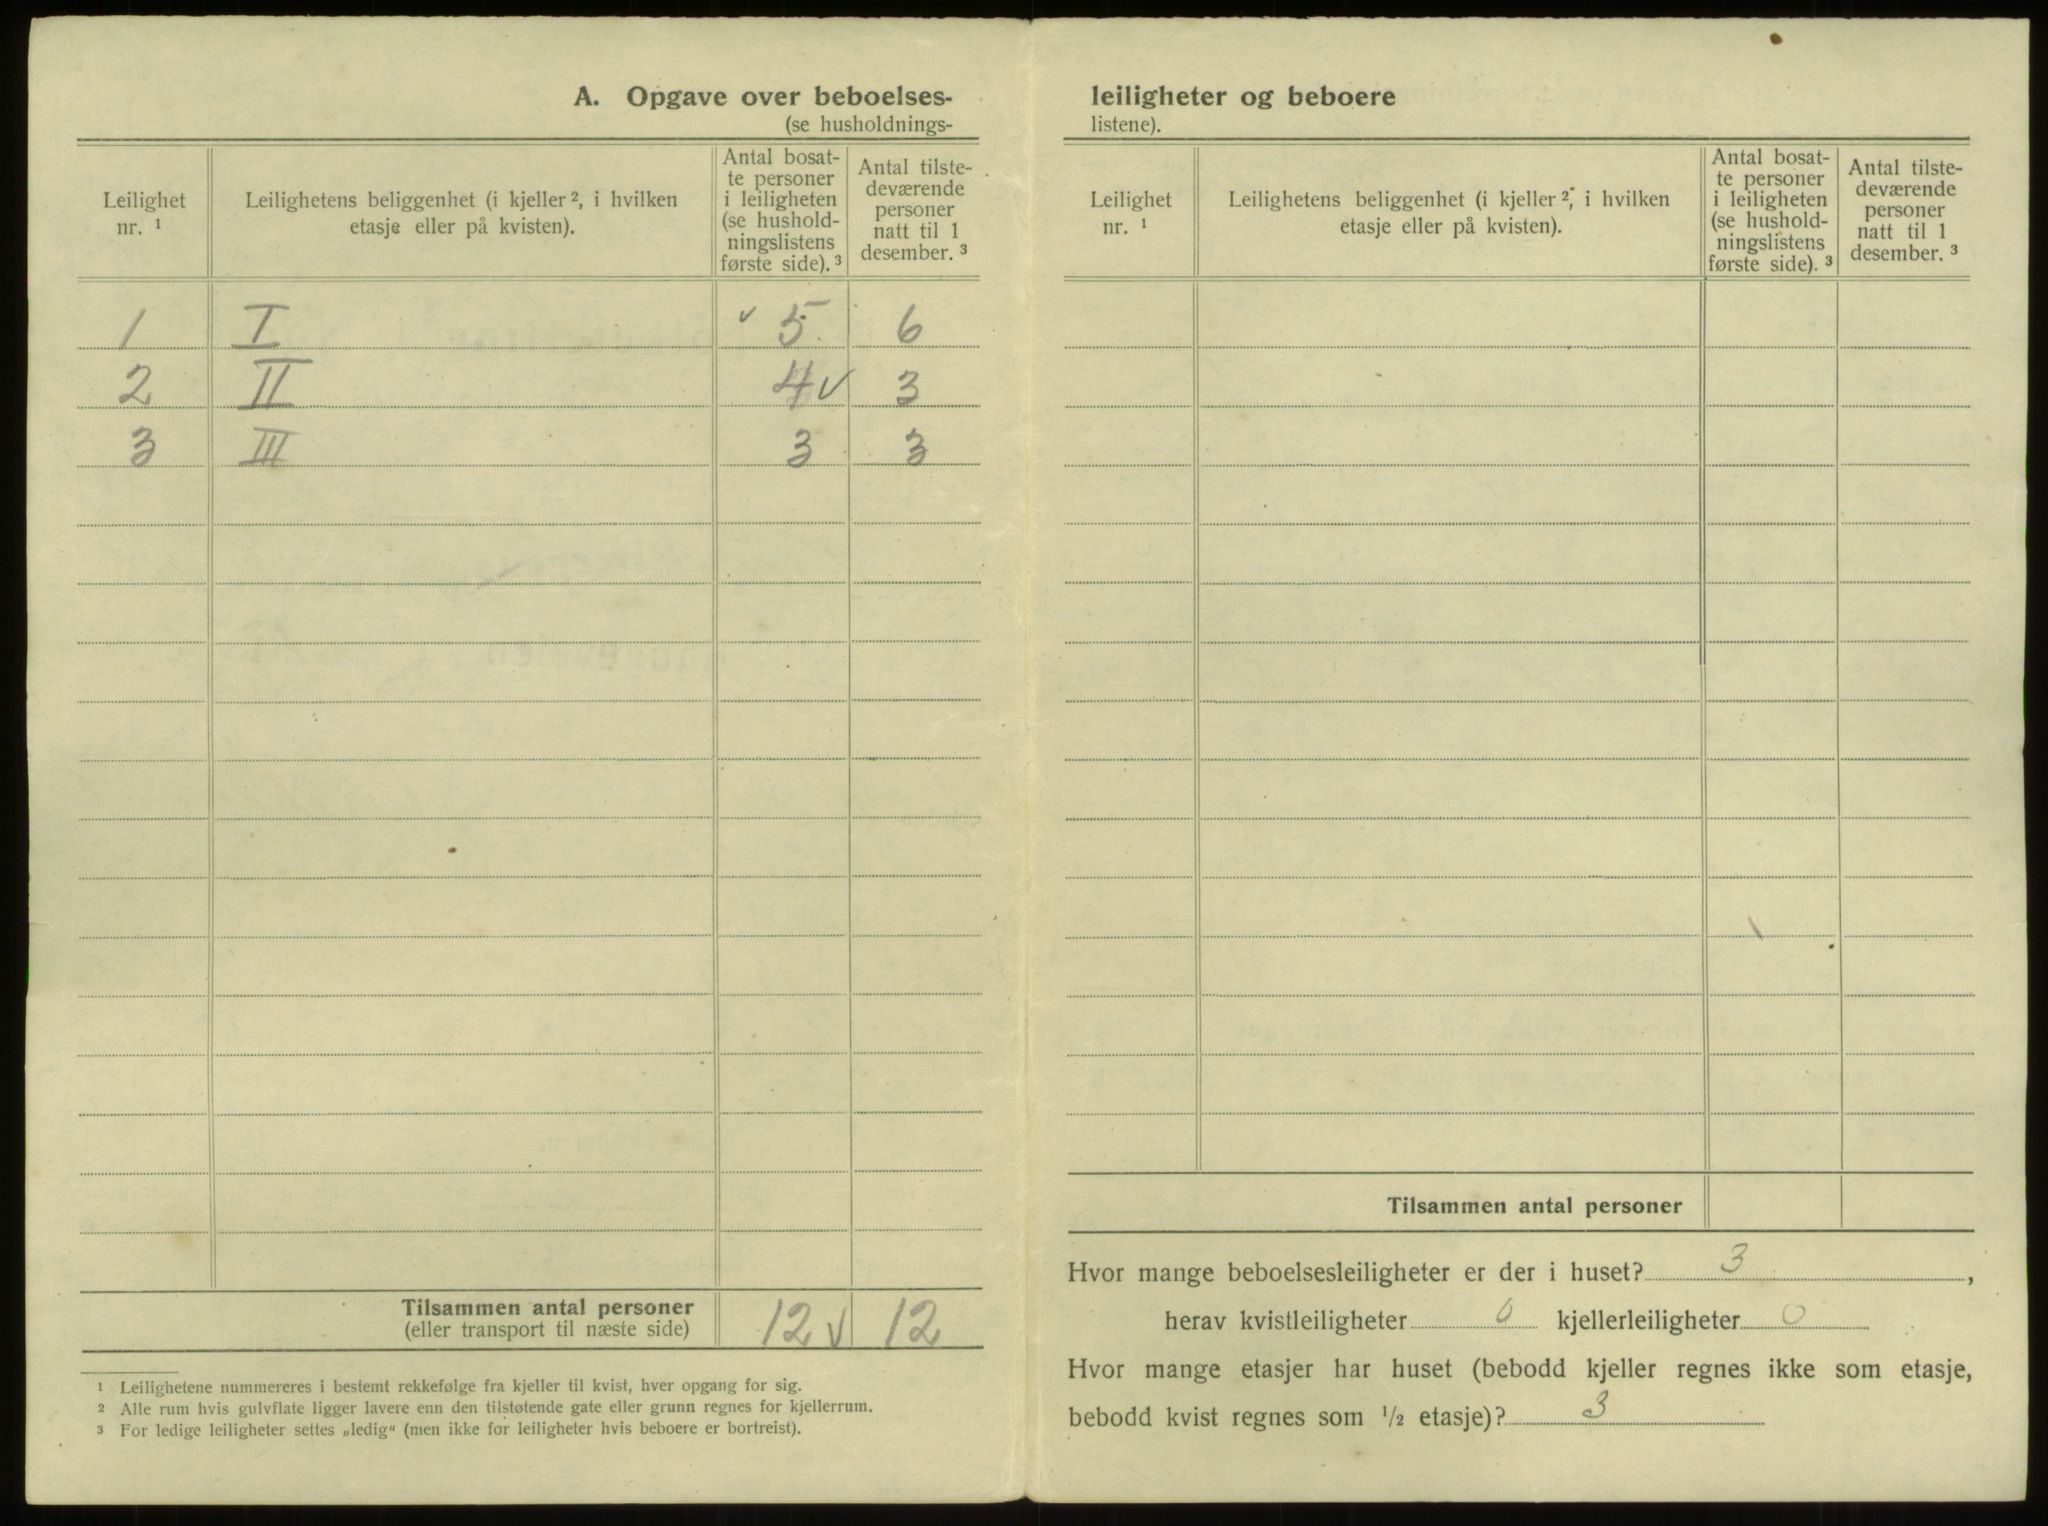 A. Opgave over beboelses-
(se husholdnings-
Leilighet nr. 1
Leilighetens beliggenhet (i kjeller 2, i hvilken etasje eller på kvisten).
Antal bosat-
te personer
i leiligheten
(se hushold-
ningslistens
første side). 3
Antal tilste-
deværende
personer
natt til 1
desember. 3
1 I ✓ 5. 6
2 II 4 ✓ 3
3 III 3 3
Tilsammen antal personer 12 ✓ 12
(eller transport til næste side)
1 Leilighetene nummereres i bestemt rekkefølge fra kjeller til kvist, hver opgang for sig.
2 Alle rum hvis gulvflate ligger lavere enn den tilstøtende gate eller grunn regnes for kjellerrum.
3 For ledige leiligheter settes „ledig“ (men ikke for leiligheter hvis beboere er bortreist).
leiligheter og beboere
listene).
Leilighet nr. 1
Leilighetens beliggenhet (i kjeller 2, i hvilken etasje eller på kvisten).
Antal bosat-
te personer
i leiligheten
(se hushold-
ningslistens
første side). 3
Antal tilste-
deværende
personer
natt til 1
desember. 3
Tilsammen antal personer
Hvor mange beboelsesleiligheter er der i huset? 3,
herav kvistleiligheter 0 kjellerleiligheter 0
Hvor mange etasjer har huset (bebodd kjeller regnes ikke som etasje,
bebodd kvist regnes som 1/2 etasje)? 3